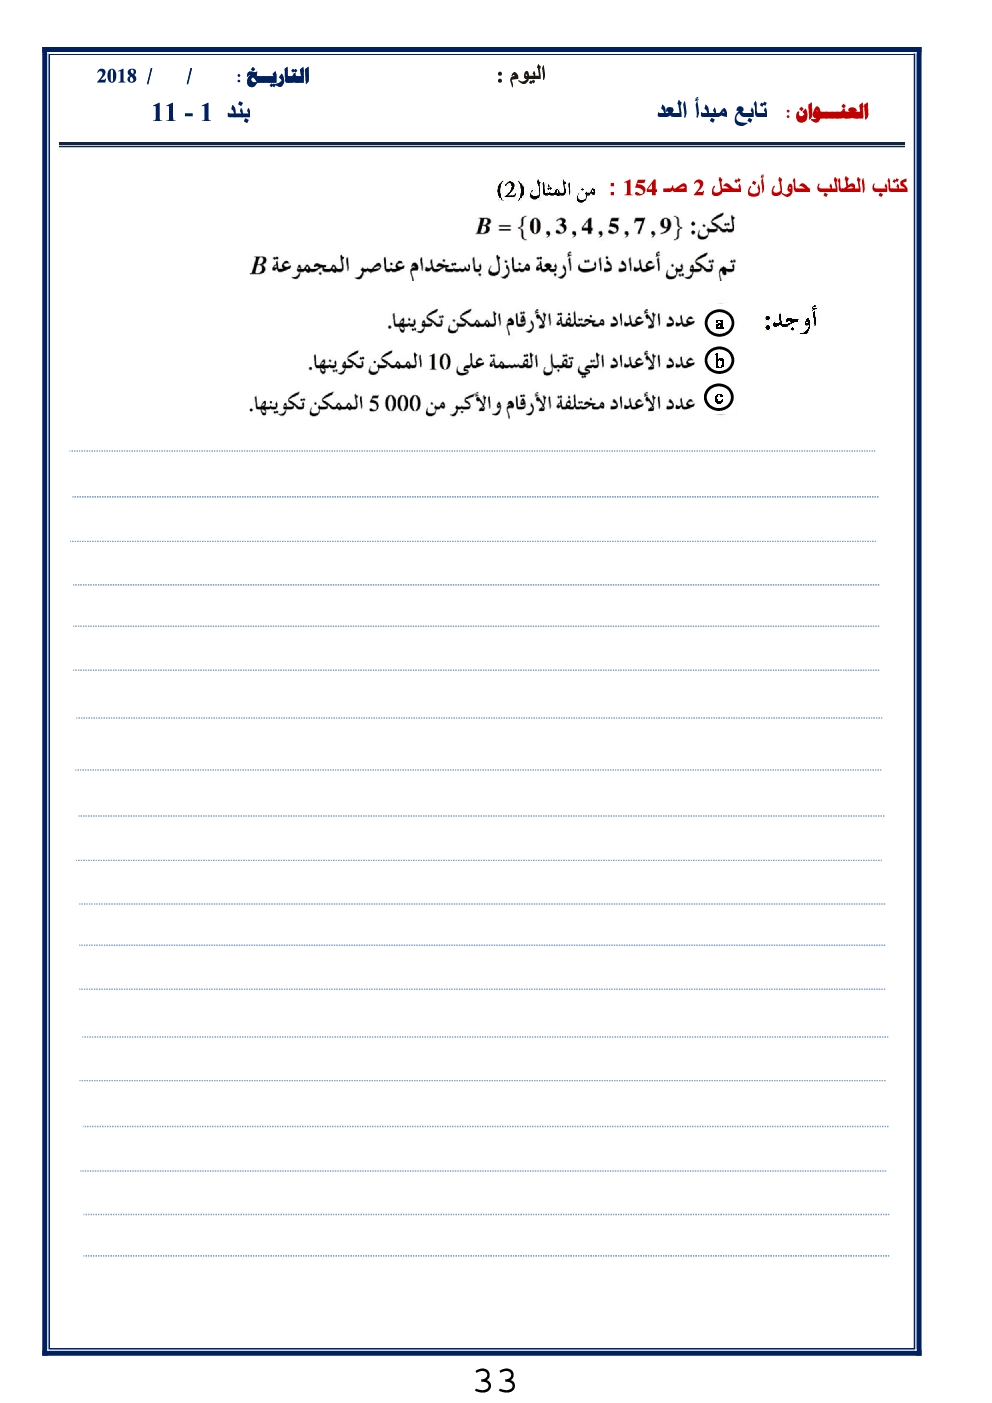 اليوم : التاريـــخ : / / 2018
العنـــــوان : تابع مبدأ العد بند 1 - 11
كتاب الطالب حاول أن تحل 2 صـ 154 : من المثال (2)
لتكن: B = {0 , 3 , 4 , 5 , 7 , 9}
تم تكوين أعداد ذات أربعة منازل باستخدام عناصر المجموعة B
أوجد: a عدد الأعداد مختلفة الأرقام الممكن تكوينها.
b عدد الأعداد التي تقبل القسمة على 10 الممكن تكوينها.
c عدد الأعداد مختلفة الأرقام والأكبر من 000 5 الممكن تكوينها.
33